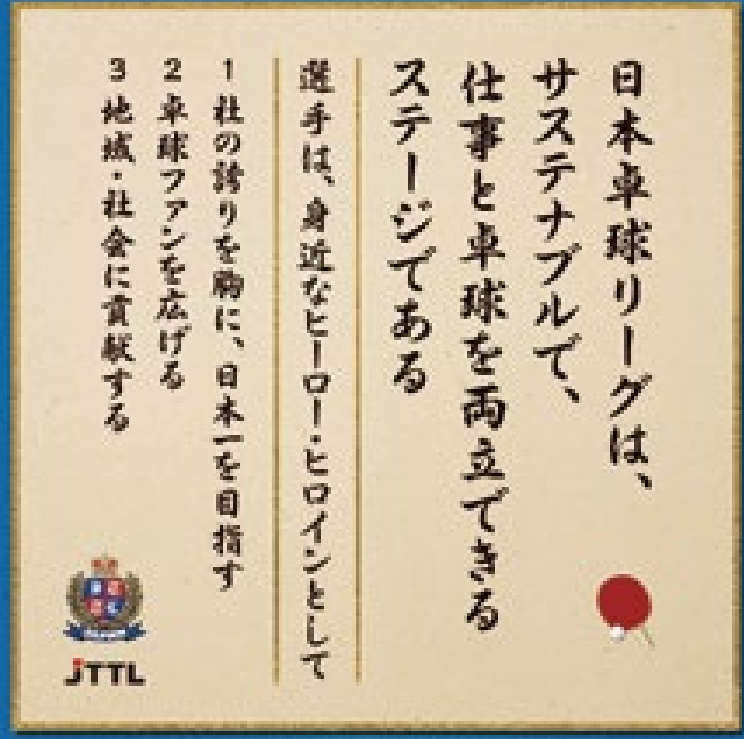 日本卓球リーグは、
サステナブルで、
仕事と卓球を両立できる
ステージである
選手は、身近なヒーロー・ヒロインとして
1 社の誇りを胸に、日本一を目指す
2 卓球ファンを広げる
3 地域・社会に貢献する
JTTL